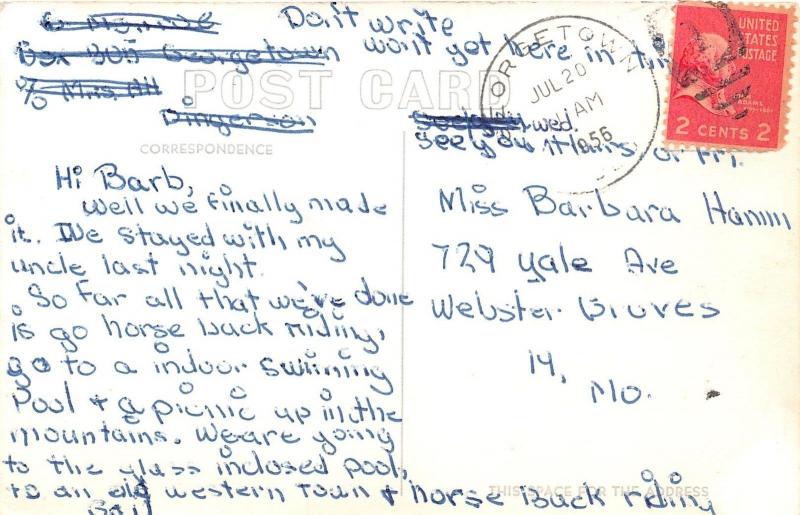 Don't write
Box 305 Georgetown won't get here in time
% Miss
Dingerson
POST CARD
CORRESPONDENCE
GEORGETOWN
JUL 20
AM
1956
UNITED
STATES
POSTAGE
ADAMS
2 CENTS 2
wed.
See you thurs or Fri.
Hi Barb,
Well we finally made
it. We stayed with my
uncle last night.
So far all that we've done
is go horse back riding,
go to a indoor swiming
Pool + a picnic up in the
mountains. We are going
to the glass inclosed pool,
to an old western town + horse back riding
Gail
Miss Barbara Hamm
729 Yale Ave
Webster Groves
14,
Mo.
THIS SPACE FOR THE ADDRESS